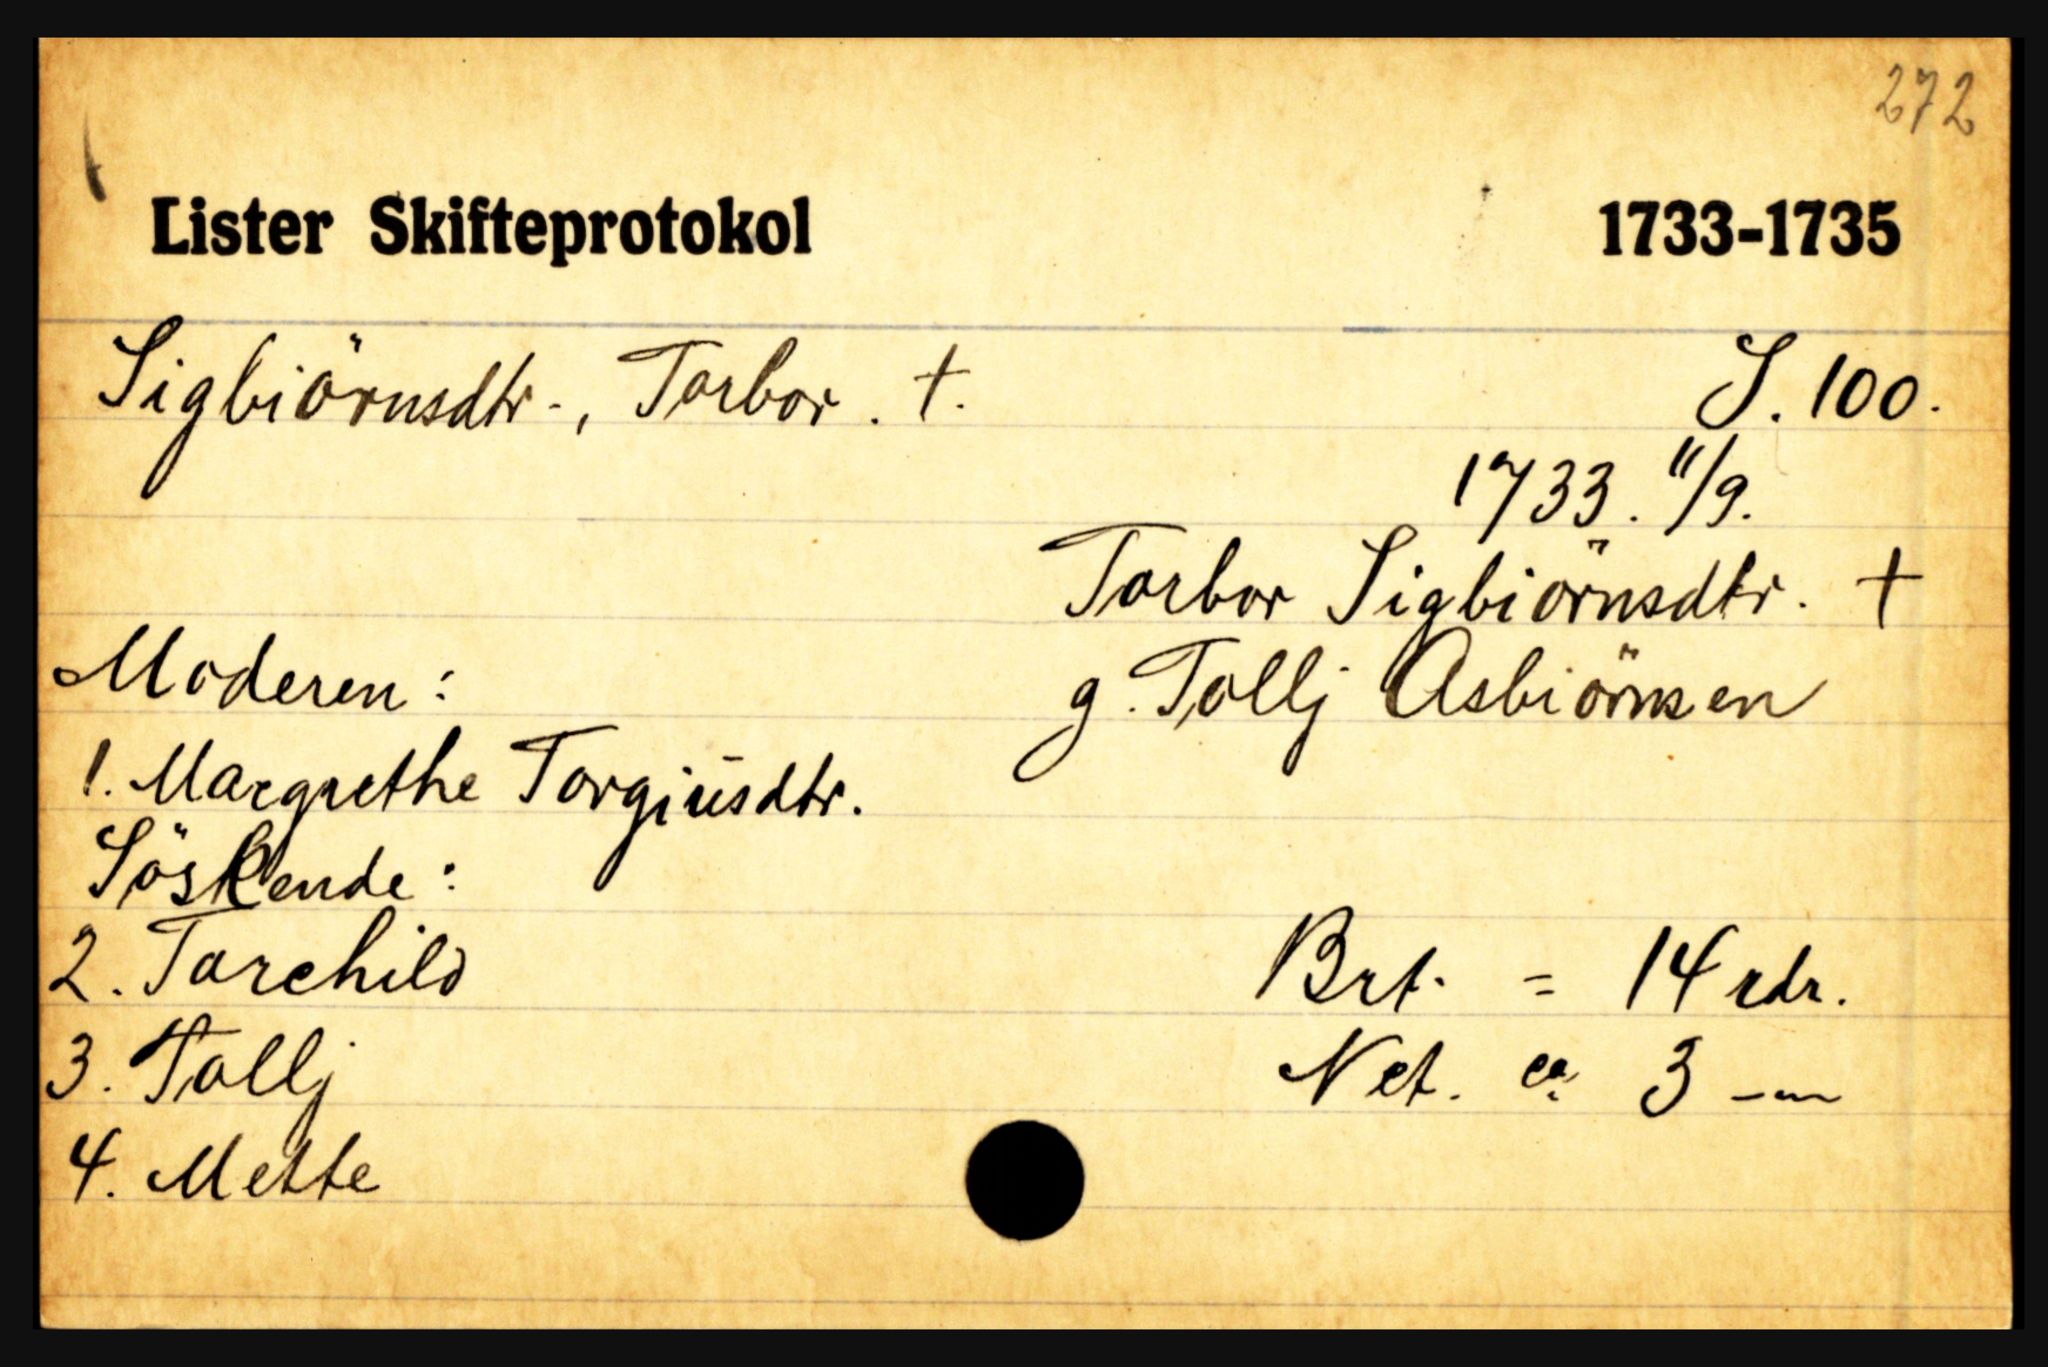 272
Lister Skifteprotokol 1733-1735
Sigbiörnsdtr., Torbor. †. S. 100.
1733. 11/9.
Torbor Sigbiörnsdtr. †
g. Tollj Asbiörnsen
Moderen:
1. Margrethe Torgiusdtr.
Söskende:
2. Torchild
3. Tollj
4. Mette
Brt. = 14 rdr.
Net. ca. 3 -"-